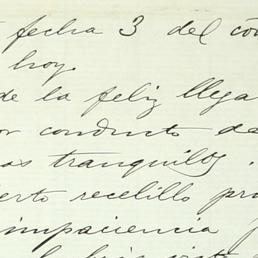 fecha 3 del co
hoy.
de la feliz llega
or conducto de
as tranquilos.
erto recelillo pro
impaciencia